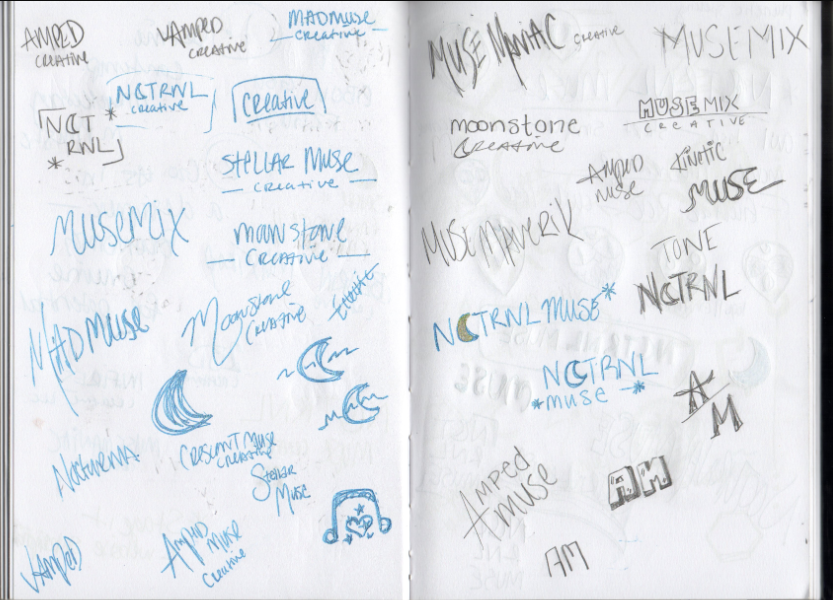 AMPED
CREATIVE
VAMPED
CREATIVE
MADMUSE
CREATIVE
NCTRNL
CREATIVE
CREATIVE
NCT *
* RNL
STELLAR MUSE
CREATIVE
MUSEMIX
MOONSTONE
CREATIVE
MAD MUSE
Moonstone
CREATIVE
NOCTURNA
CRESCENT MUSE
CREATIVE
STELLAR
MUSE
VAMPED
AMPED
MUSE
CREATIVE
MUSE MANIAC CREATIVE
MUSEMIX
moonstone
CREATIVE
MUSE MIX
CREATIVE
AMPED
MUSE
KINETIC
MUSE
MUSE MAVERIK
TONE
NCTRNL
NCTRNL MUSE*
NCTRNL
*muse*
A/M
AMPED
AMUSE
AM
AM